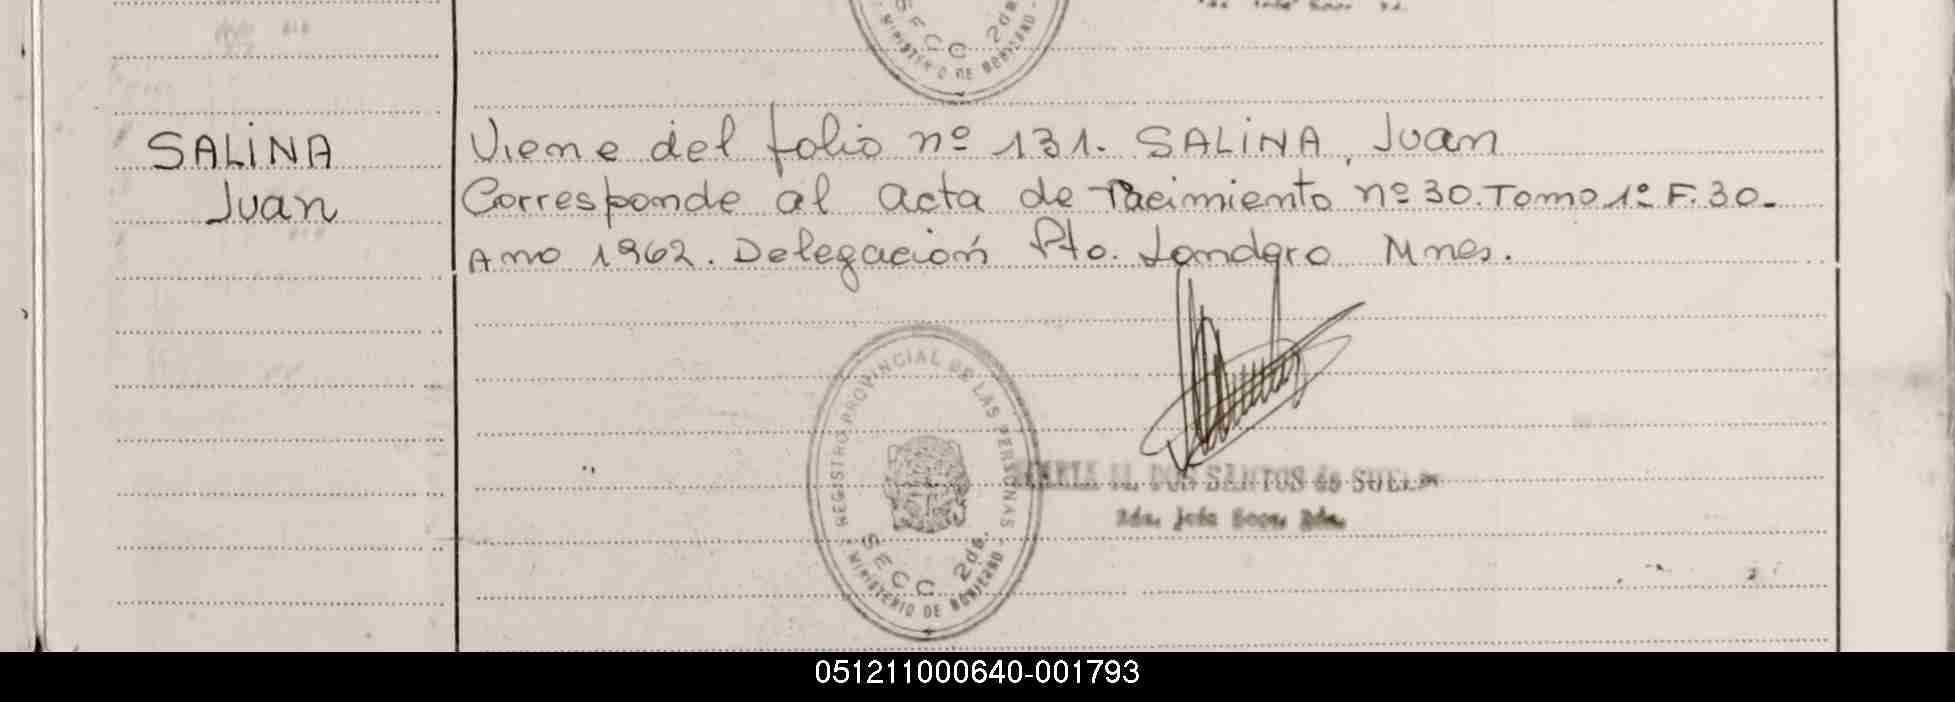 SECC 2da.
MINISTERIO DE GOBIERNO
SALiNA
Juan
Viene del folio nº 131. SALiNA, Juan
Corresponde al acta de nacimiento nº 30. Tomo 1º F. 30.
Año 1962. Delegación Pto. Londero Mnes.
REGISTRO PROVINCIAL DE LAS PERSONAS
SECC 2da.
MINISTERIO DE GOBIERNO
DOS SANTOS de
051211000640-001793